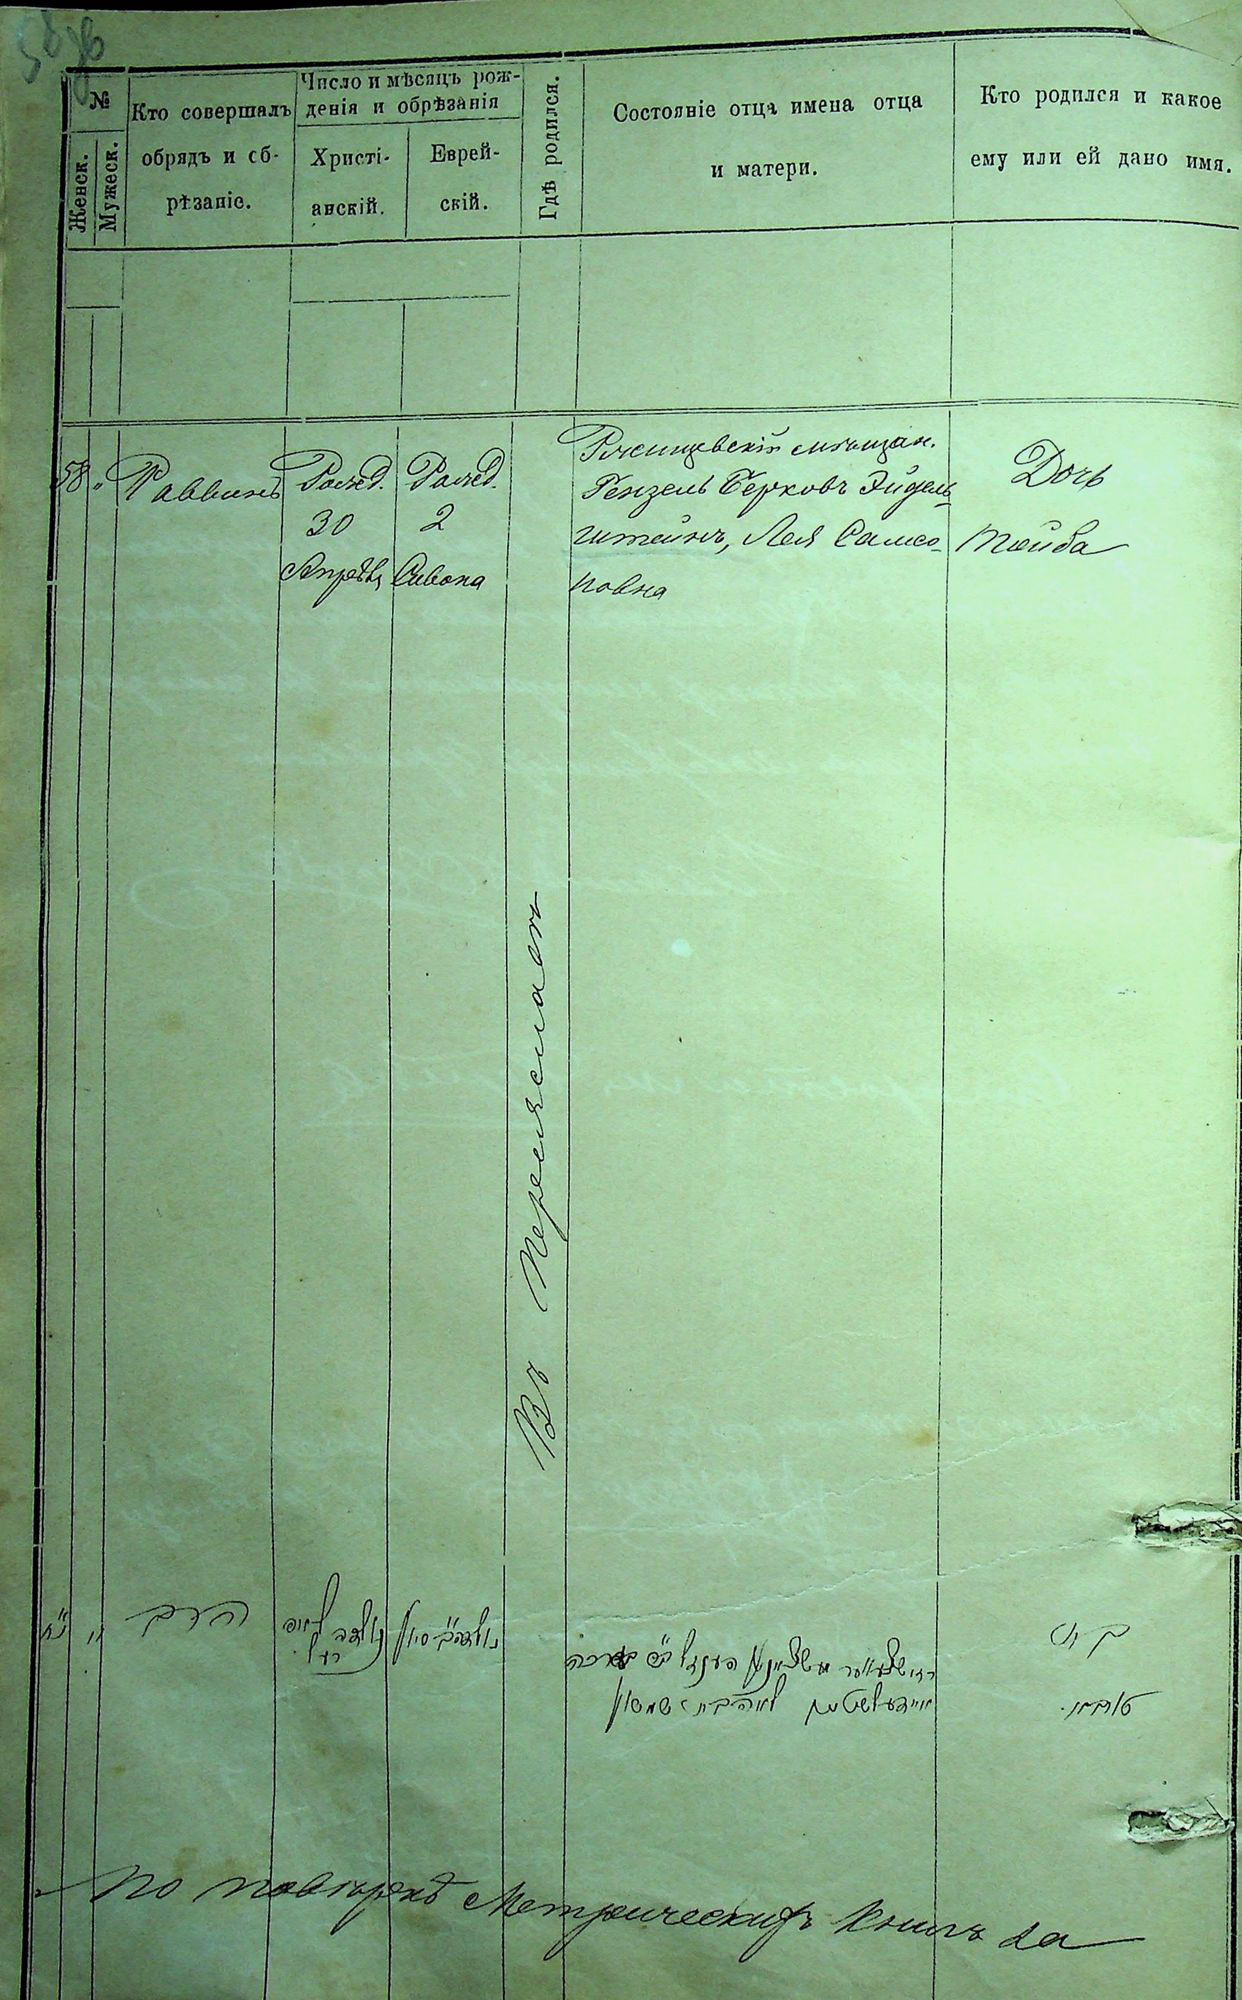 №
Женск.
Мужеск.
Кто совершалъ
обрядъ и об-
рѣзаніе.
Число и мѣсяцъ рож-
денія и обрѣзанія
Христі-
анскій.
Еврей-
скій.
Гдѣ родился.
Состояніе отца имена отца
и матери.
Кто родился и какое
ему или ей дано имя.
58
"
Раввинъ
Рожд.
30
Апрѣля
Рожд.
2
Сивона
Въ Переяславѣ
Ржищевскій мѣщан.
Гензель Берковъ Эйдель-
штейнъ, Лея Самсо-
новна
Дочь
Тойба
נ״ח
"
הרב
שמשון
בת
По повѣркѣ Метрическихъ Книгъ за